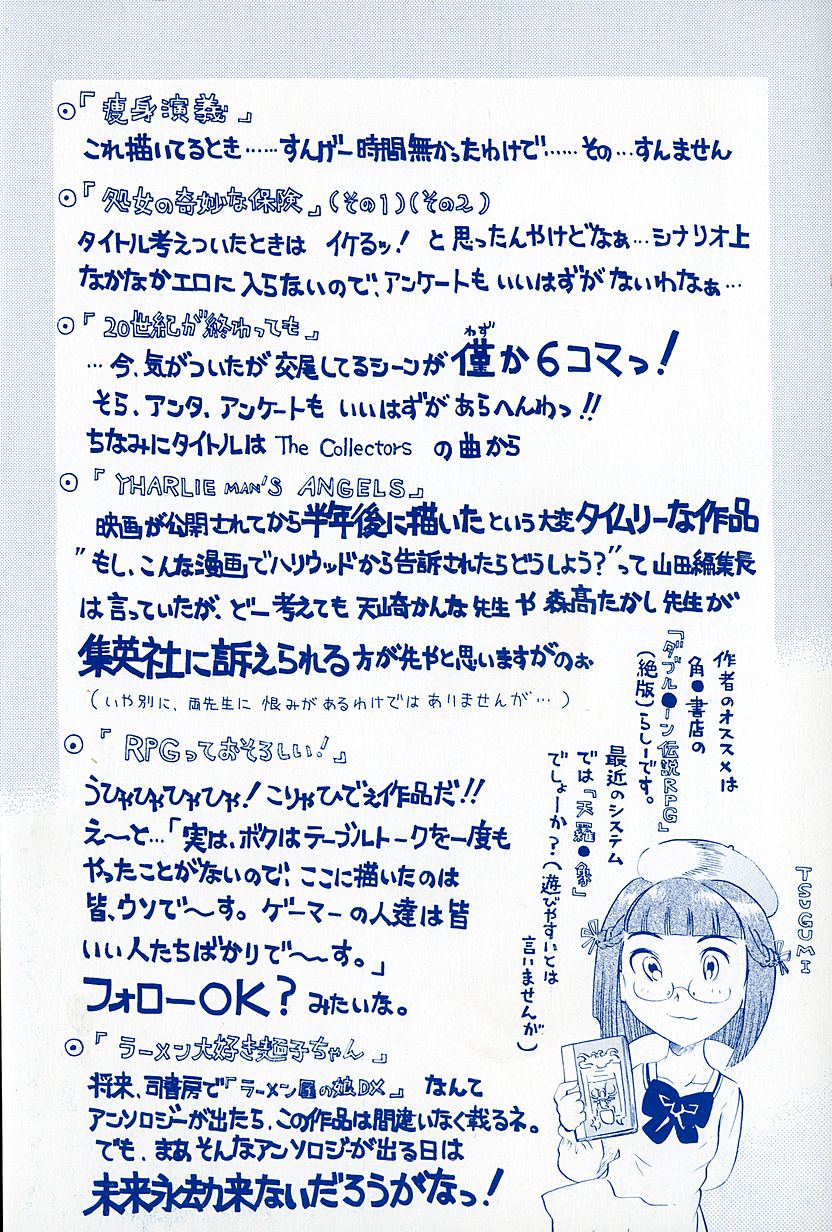 ◉『痩身演義』
これ描いてるとき……すんげー時間無かったわけで……その…すんません
◉『処女の奇妙な保険』(その1)(その2)
タイトル考えついたときは イケるッ! と思ったんやけどなぁ…シナリオ上
なかなかエロに入らないので、アンケートもいいはずがないわなぁ…
◉『20世紀が終わっても』
…今、気がついたが交尾してるシーンが僅か6コマっ!
わず
そら、アンタ、アンケートも いいはずがあらへんわっ!!
ちなみにタイトルは The Collectors の曲から
◉『YHARLIE MAN'S ANGELS』
映画が公開されてから半年後に描いたという大変タイムリーな作品
"もし、こんな漫画でハリウッドから告訴されたらどうしよう?"って山田編集長
は言っていたが、どー考えても 天崎かんな先生や 森高たかし先生が
集英社に訴えられる方が先やと思いますがのぉ
(いや別に、両先生に 恨みがあるわけでは ありませんが…)
◉『RPGっておそろしい!』
うひゃひゃひゃひゃ! こりゃひでえ作品だ!!
え〜と…「実は、ボクはテーブルトークを一度も
やったことがないので、ここに描いたのは
皆、ウソで〜す。ゲーマーの人達は皆
いい人たちばかりで〜〜す。」
フォローOK? みたいな。
◉『ラーメン大好き麺子ちゃん』
将来、司書房で『ラーメン屋の娘DX』 なんて
アンソロジーが出たら、この作品は間違いなく載るネ。
でも、まぁそんなアンソロジーが出る日は
未来永劫来ないだろうがなっ!
作者のオススメは
角●書店の
『ダブル●ーン伝説RPG』
(絶版)らしーです。
最近のシステム
では『天羅●象』
でしょーか?(遊びやすいとは
言いませんが)
TSUGUMI